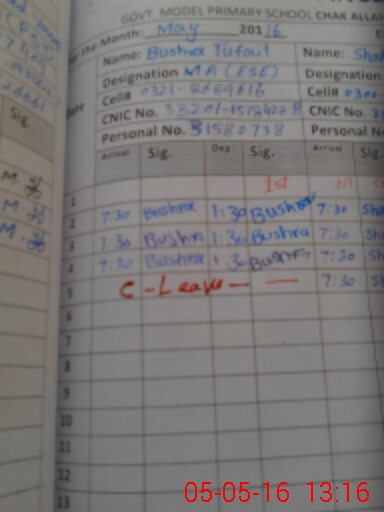 GOVT. MODEL PRIMARY SCHOOL CHAK
the Month: May 2016
Name: Bushra Tufail Name:
Designation M A (ESE) Designation
Cell# 0321- Cell# 0300
CNIC No. CNIC No. 3
Personal No. 31580738 Personal N
Date Arrival Sig. Dep. Sig. Arrival Sig.
Sig.
1 1st
2 7:30 Bushra 1:30 Bushra 7:30 Sha
3 7:30 Bushra 1:30 Bushra 7:30 Sha
4 7:30 Bushra 1:30 Bushra 7:30 Sh
5 C - Leave - - 7:30 Sh
6
7
8
9
10
11
12
13
05-05-16 13:16